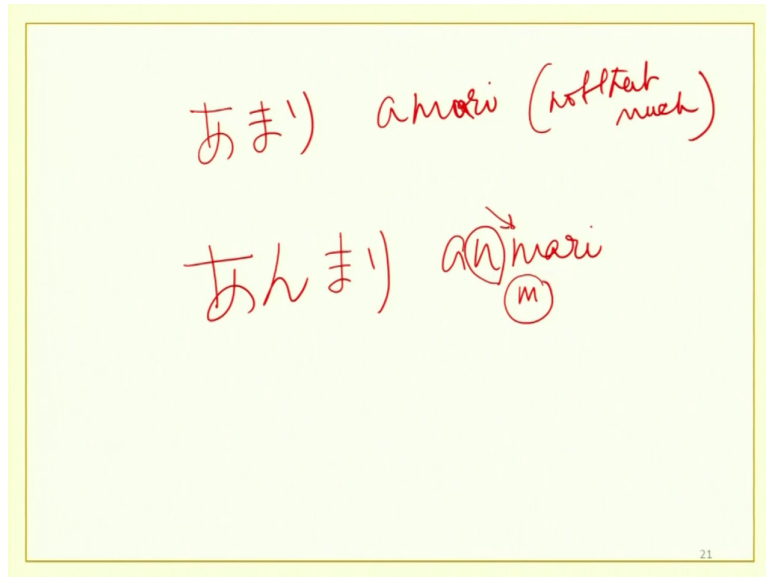 あまり amari (not that
much)
あんまり anmari
m
21